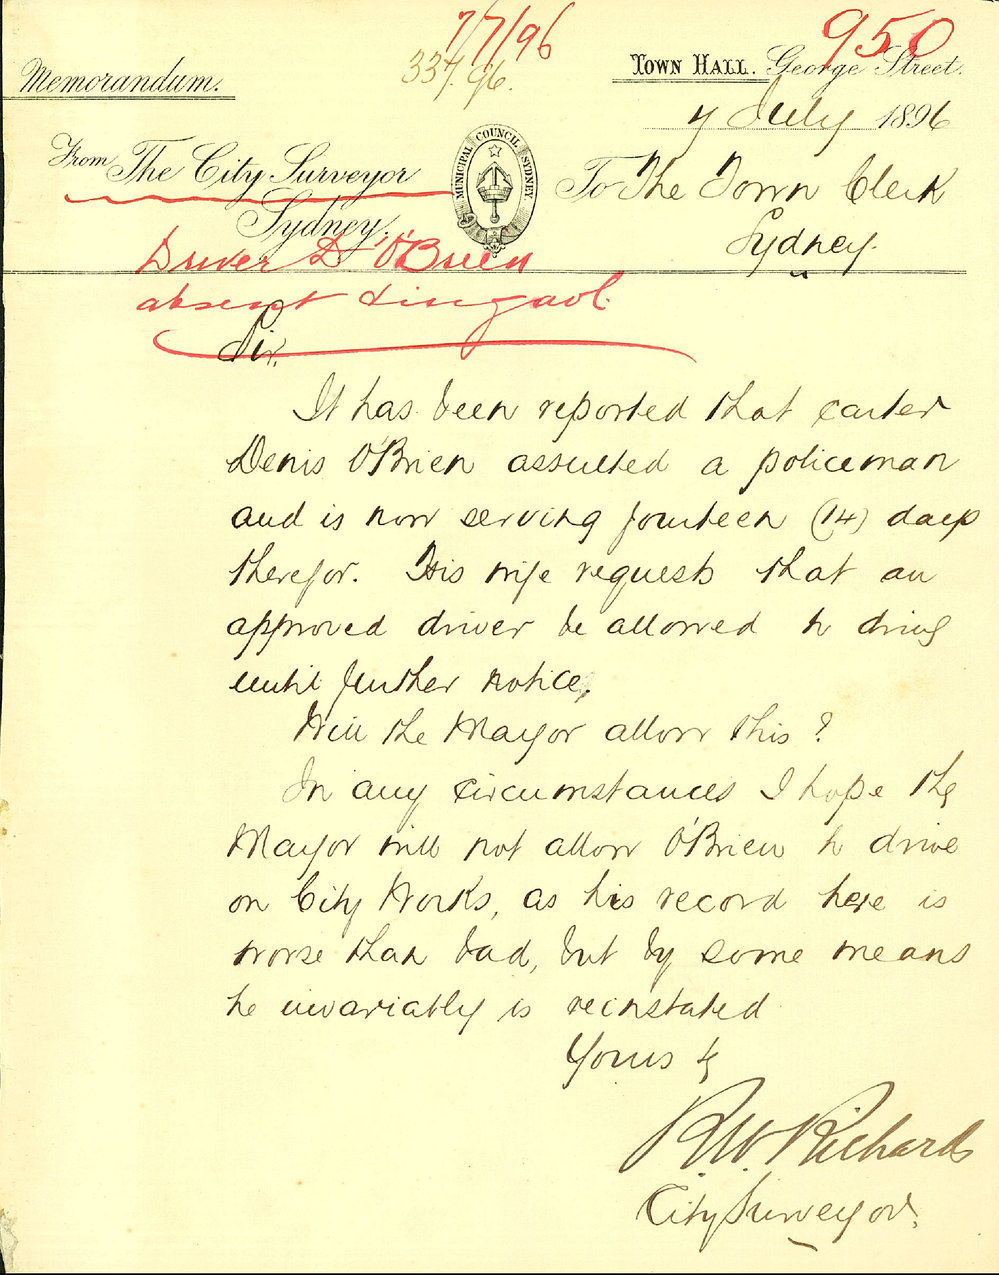 7/7/96
950
337.96.
Memorandum.
Town Hall. George Street.
7 July 1896
From The City Surveyor
Sydney.
MUNICIPAL COUNCIL SYDNEY
To The Town Clerk
Sydney.
Driver D O'Brien
absent in gaol.
Sir,
It has been reported that carter
Denis O'Brien assulted a policeman
and is now serving fourteen (14) days
therefor. His wife requests that an
approved driver be allowed to drive
until further notice.
Will the Mayor allow this?
In any circumstances I hope the
Mayor will not allow O'Brien to drive
on City Works, as his record here is
worse than bad, but by some means
he invariably is reinstated
Yours &
R.W. Richards
City Surveyor.